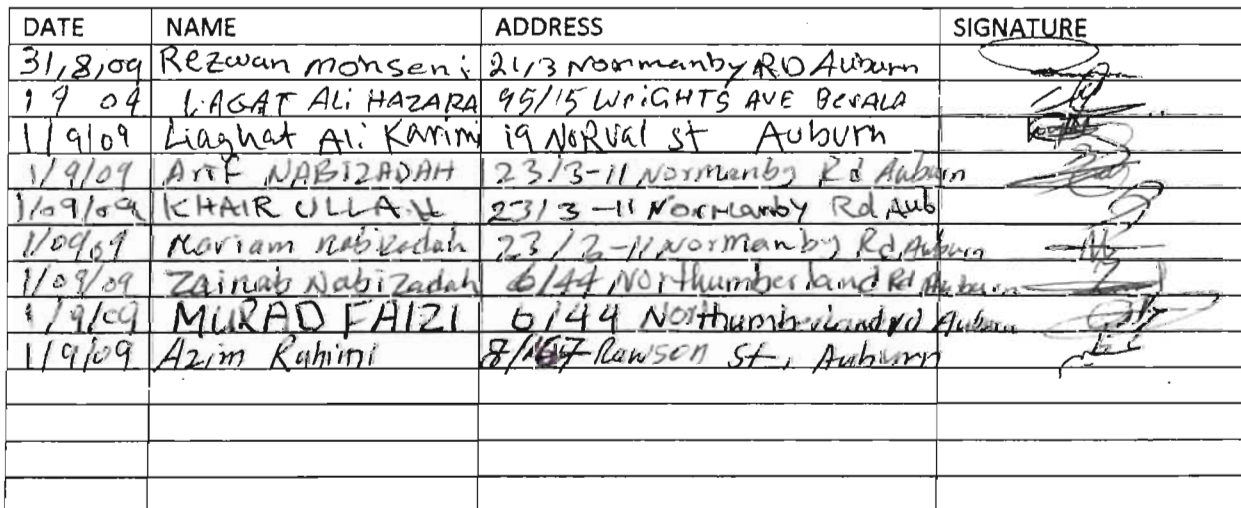 DATE NAME ADDRESS SIGNATURE
31/8/09 Rezwan mohseni 21/3 Normanby RD Auburn
1 9 09 LiAGAT ALi HAZARA 95/15 WRiGHTS AVE BERALA
1/9/09 Liaghat Ali Karimi 19 NoRval st Auburn
1/9/09 ArTF NABIZADAH 23/3-11 Normanby Rd Auburn
1/09/09 KHAIR ULLAH 23/3-11 Normanby Rd, Aub
1/09/09 Mariam Nabizadah 23/3-11 Normanby Rd, Auburn
1/09/09 Zainab Nabizadah 6/44 Northumberland Rd Auburn
1/9/09 MURAD FAIZI 6/44 Northumberland rd Auburn
1/9/09 Azim Rahimi Rawson St, Auburn